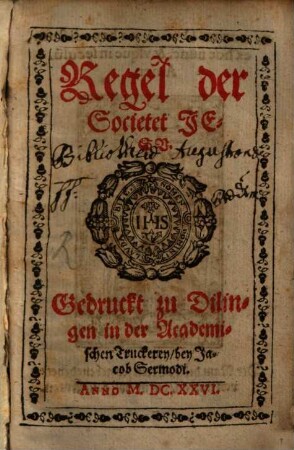 Regel der
Societet JE-
SV.
Bibliothecae Augustanae
IHS
Gedruckt zu Dilin-
gen in der Academi-
schen Truckerey/bey Ja-
cob Sermodi.
ANNO M. DC. XXVI.